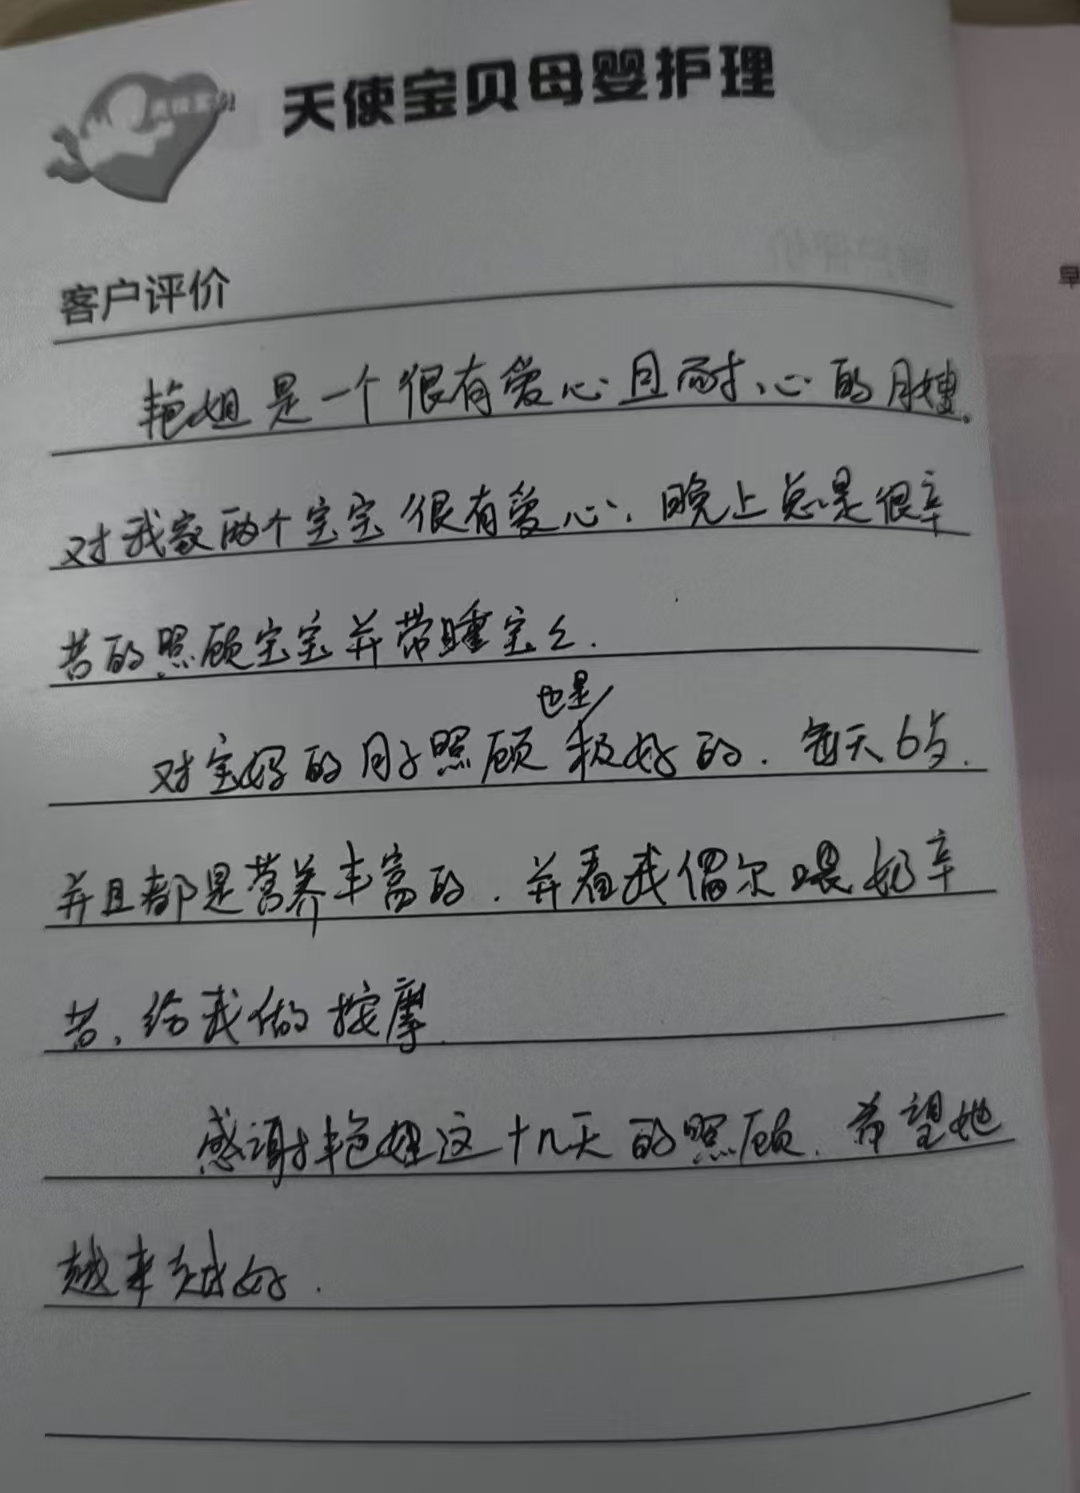 天使宝贝母婴护理
客户评价
艳姐是一个很有爱心且耐心的月嫂。
对我家两个宝宝很有爱心，晚上总是很辛
苦的照顾宝宝并带睡宝宝.
也是
对宝妈的月子照顾极好的. 每天6步.
并且都是营养丰富的. 并看我偶尔喂奶辛
苦、给我做按摩.
感谢艳姐这十几天的照顾. 希望她
越来越好.
早